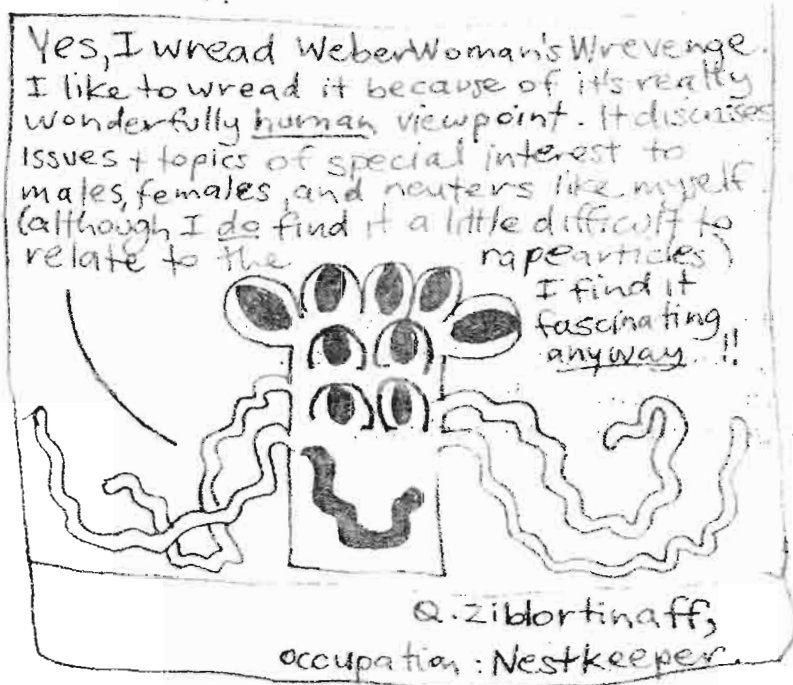 Yes, I wread WeberWoman's Wrevenge.
I like to wread it because of it's really
wonderfully human viewpoint. It discusses
issues + topics of special interest to
males, females, and neuters like myself.
(although I do find it a little difficult to
relate to the rape articles)
I find it
fascinating
anyway. !!
Q. Ziblortinaff,
occupation: Nestkeeper.